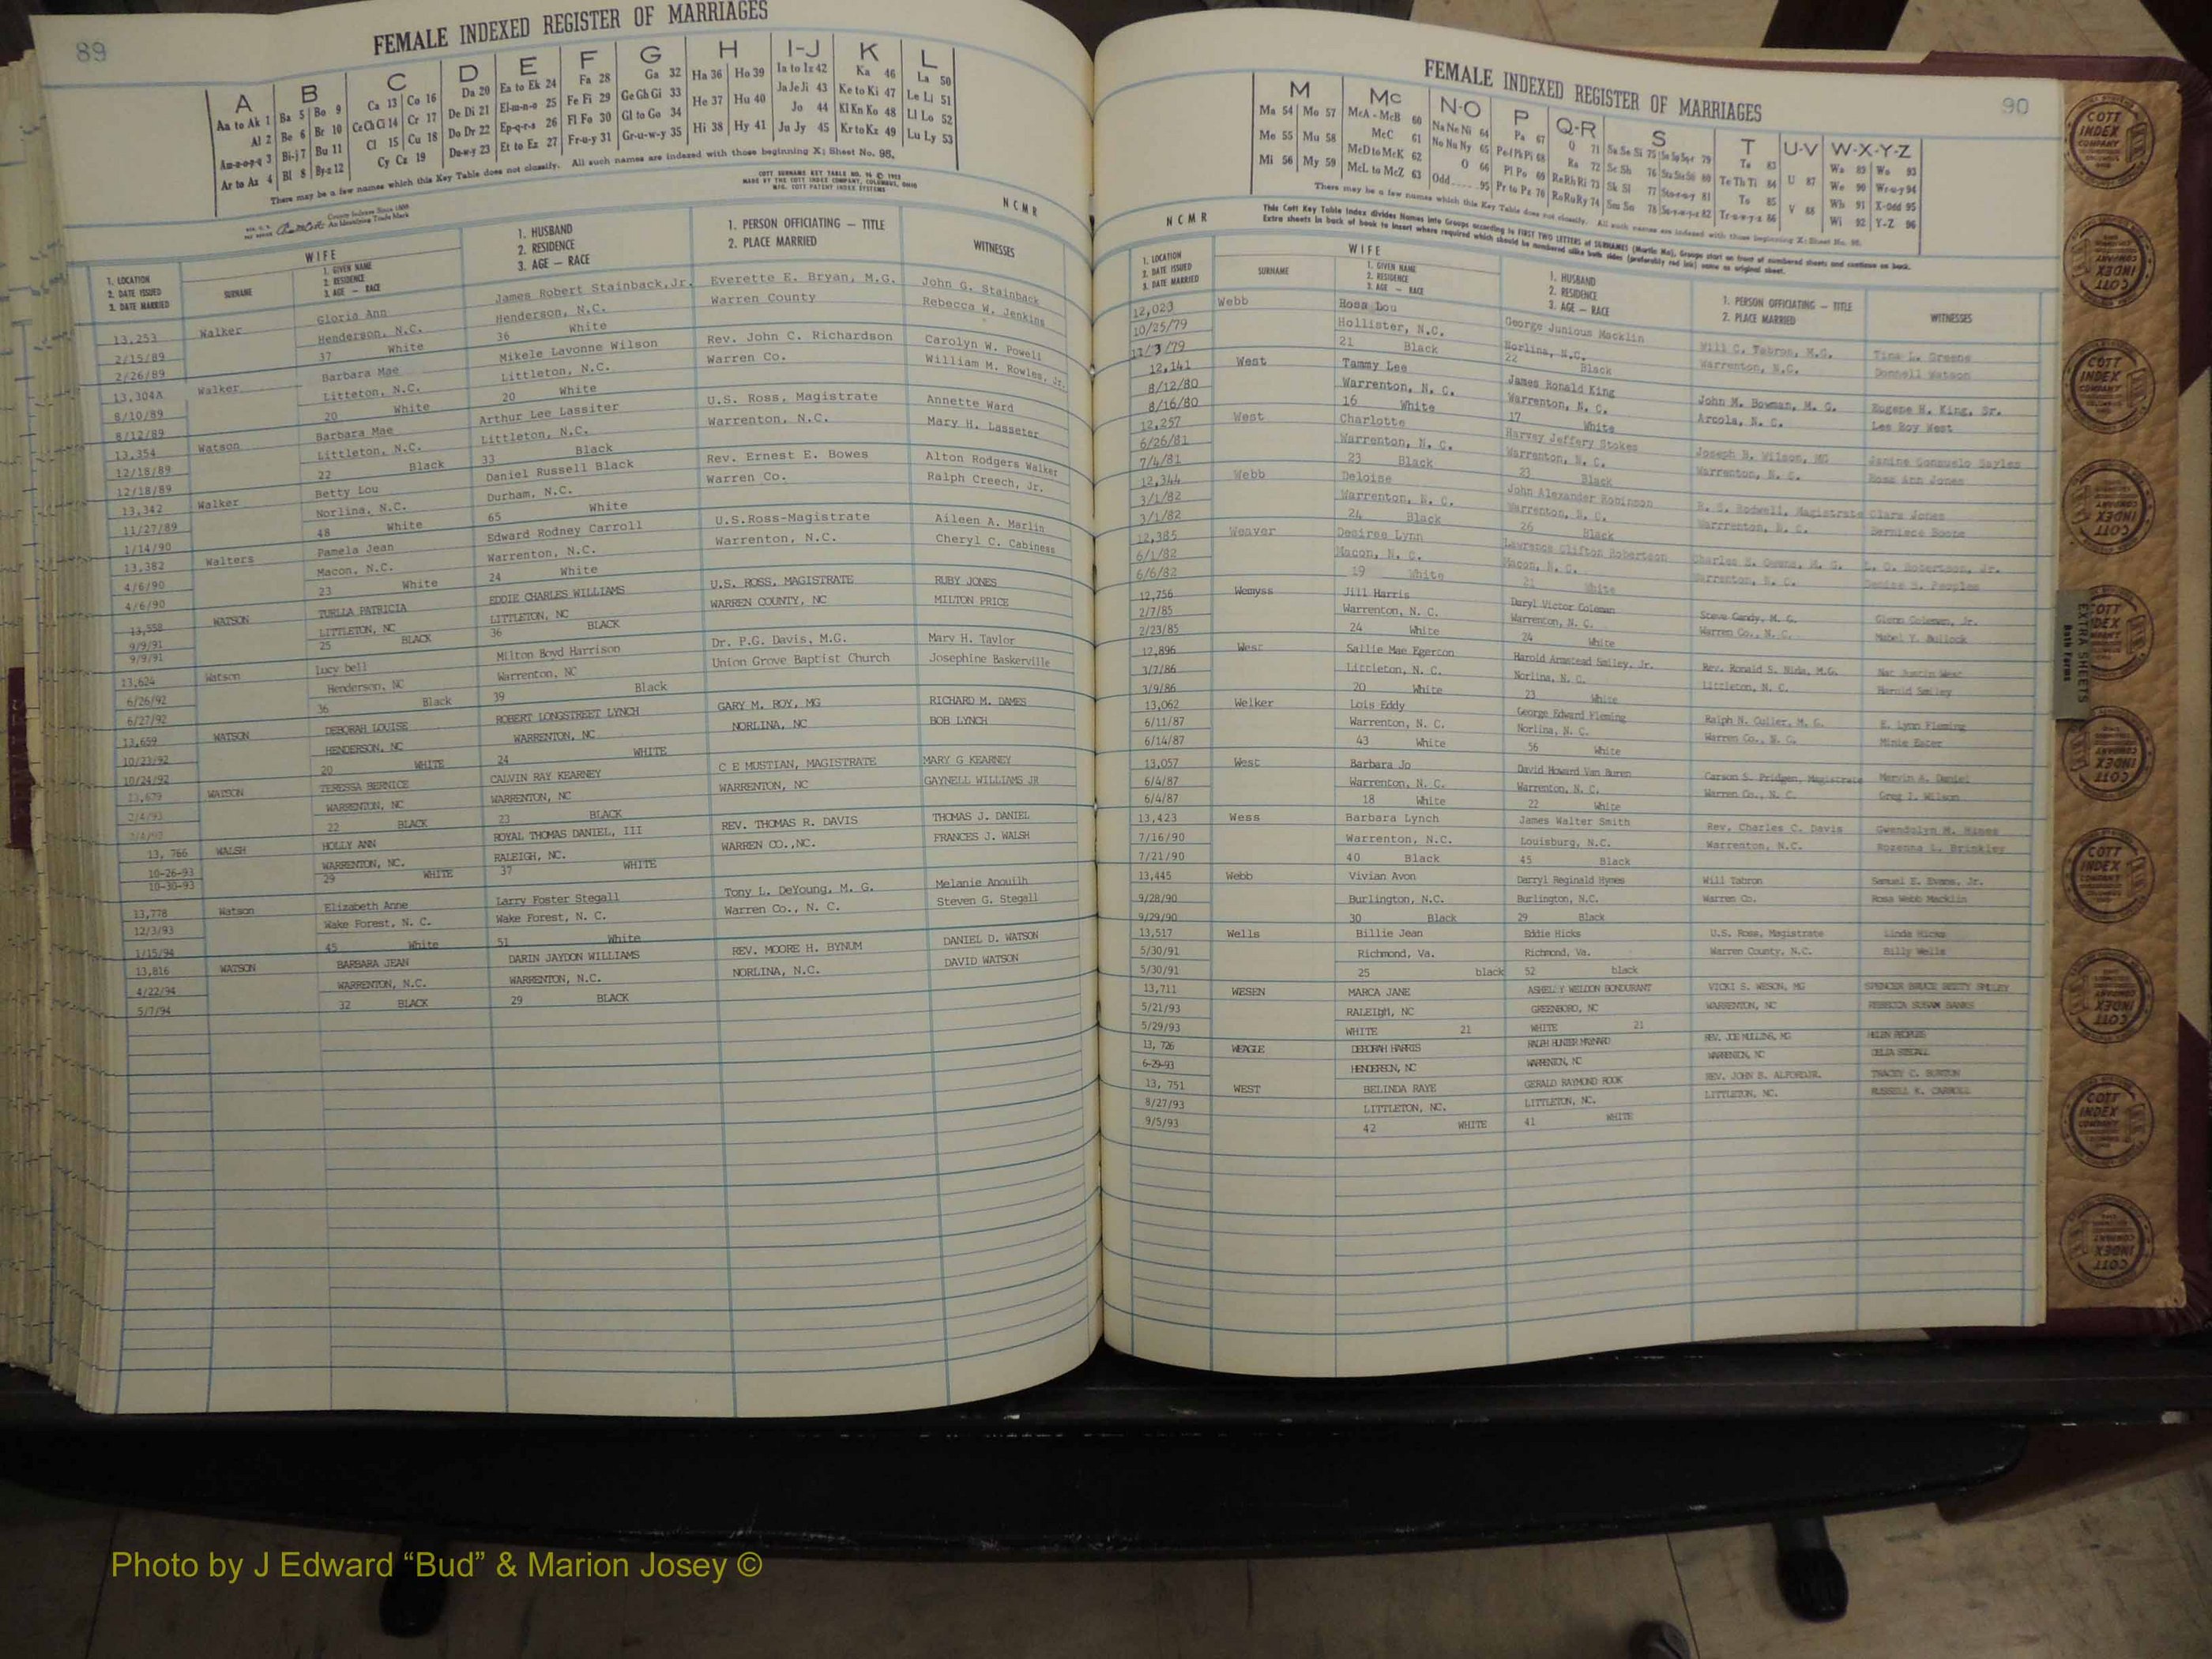 89
FEMALE INDEXED REGISTER OF MARRIAGES
A B C D E F G H I-J K L
Aa to Ak 1 Ba 5 Bo 9 Ca 13 Co 16 Da 20 Ea to Ek 24 Fa 28 Ga 32 Ha 36 Ho 39 Ia to Iz 42 Ka 46 La 50
Al 2 Be 6 Br 10 Ce Ch Ci 14 Cr 17 De Di 21 El-m-n-o 25 Fe Fi 29 Ge Gh Gi 33 He 37 Hu 40 Ja Je Ji 43 Ke to Ki 47 Le Li 51
Am-n-o-p-q 3 Bi-j 7 Bu 11 Cl 15 Cu 18 Do Dr 22 Ep-q-r-s 26 Fl Fo 30 Gl to Go 34 Hi 38 Hy 41 Jo 44 Kl Kn Ko 48 Ll Lo 52
Ar to Az 4 Bl 8 By-z 12 Cy Cz 19 Du-w-y 23 Et to Ez 27 Fr-u-y 31 Gr-u-w-y 35 Ju Jy 45 Kr to Kz 49 Lu Ly 53
There may be a few names which this Key Table does not classify. All such names are indexed with those beginning X: Sheet No. 95.
N C M R
1. LOCATION
2. DATE ISSUED
3. DATE MARRIED
WIFE
SURNAME
1. GIVEN NAME
2. RESIDENCE
3. AGE — RACE
1. HUSBAND
2. RESIDENCE
3. AGE — RACE
1. PERSON OFFICIATING — TITLE
2. PLACE MARRIED
WITNESSES
13,253 Walker Gloria Ann James Robert Stainback, Jr. Everette E. Bryan, M.G. John G. Stainback
2/15/89 Henderson, N.C. Henderson, N.C. Warren County Rebecca W. Jenkins
2/26/89 37 White 36 White
13,304A Walker Barbara Mae Mikele Lavonne Wilson Rev. John C. Richardson Carolyn W. Powell
8/10/89 Litteton, N.C. Littleton, N.C. Warren Co. William M. Rowles, Jr.
8/12/89 20 White 20 White
13,354 Watson Barbara Mae Arthur Lee Lassiter U.S. Ross, Magistrate Annette Ward
12/18/89 Littleton, N.C. Littleton, N.C. Warrenton, N.C. Mary H. Lasseter
12/18/89 22 Black 33 Black
13,342 Walker Betty Lou Daniel Russell Black Rev. Ernest E. Bowes Alton Rodgers Walker
11/27/89 Norlina, N.C. Durham, N.C. Warren Co. Ralph Creech, Jr.
1/14/90 48 White 65 White
13,382 Walters Pamela Jean Edward Rodney Carroll U.S.Ross-Magistrate Aileen A. Marlin
4/6/90 Macon, N.C. Warrenton, N.C. Warrenton, N.C. Cheryl C. Cabiness
4/6/90 23 White 24 White
13,558 WATSON TURLLA PATRICIA EDDIE CHARLES WILLIAMS U.S. ROSS, MAGISTRATE RUBY JONES
9/9/91 LITTLETON, NC LITTLETON, NC WARREN COUNTY, NC MILTON PRICE
9/9/91 25 BLACK 36 BLACK
13,624 Watson Lucy bell Milton Boyd Harrison Dr. P.G. Davis, M.G. Mary H. Taylor
6/26/92 Henderson, NC Warrenton, NC Union Grove Baptist Church Josephine Baskerville
6/27/92 36 Black 39 Black
13,659 WATSON DEBORAH LOUISE ROBERT LONGSTREET LYNCH GARY M. ROY, MG RICHARD M. DAMES
10/23/92 HENDERSON, NC WARRENTON, NC NORLINA, NC BOB LYNCH
10/24/92 20 WHITE 24 WHITE
13,679 WATSON TERESSA BERNICE CALVIN RAY KEARNEY C E MUSTIAN, MAGISTRATE MARY G KEARNEY
2/4/93 WARRENTON, NC WARRENTON, NC WARRENTON, NC GAYNELL WILLIAMS JR
22 BLACK 23 BLACK
13, 766 WALSH HOLLY ANN ROYAL THOMAS DANIEL, III REV. THOMAS R. DAVIS THOMAS J. DANIEL
10-26-93 WARRENTON, NC. RALEIGH, NC. WARREN CO.,NC. FRANCES J. WALSH
10-30-93 29 WHITE 37 WHITE
13,778 Watson Elizabeth Anne Larry Foster Stegall Tony L. DeYoung, M. G. Melanie Anouilh
12/3/93 Wake Forest, N. C. Wake Forest, N. C. Warren Co., N. C. Steven G. Stegall
1/15/94 45 White 51 White
13,816 WATSON BARBARA JEAN DARIN JAYDON WILLIAMS REV. MOORE H. BYNUM DANIEL D. WATSON
4/22/94 WARRENTON, N.C. WARRENTON, N.C. NORLINA, N.C. DAVID WATSON
5/7/94 32 BLACK 29 BLACK
90
FEMALE INDEXED REGISTER OF MARRIAGES
M Mc N-O P Q-R S T U-V W-X-Y-Z
There may be a few names which this Key Table does not classify. All such names are indexed with those beginning X: Sheet No. 95.
N C M R
This Cott Key Table Index divides Names into Groups according to FIRST TWO LETTERS of SURNAMES
1. LOCATION
2. DATE ISSUED
3. DATE MARRIED
WIFE
SURNAME
1. GIVEN NAME
2. RESIDENCE
3. AGE — RACE
1. HUSBAND
2. RESIDENCE
3. AGE — RACE
1. PERSON OFFICIATING — TITLE
2. PLACE MARRIED
WITNESSES
12,023 Webb Rosa Lou George Junious Macklin Will C. Tabron, M.G. Tina L. Greene
10/25/79 Hollister, N.C. Norlina, N.C. Warrenton, N.C. Donnell Watson
11/3/79 21 Black 22 Black
12,141 West Tammy Lee James Ronald King John M. Bowman, M. G. Eugene H. King, Sr.
8/12/80 Warrenton, N. C. Warrenton, N. C. Arcola, N. C. Lee Roy West
8/16/80 16 White 17 White
12,257 West Charlotte Harvey Jeffery Stokes Joseph N. Wilson, MG Janine Consuelo Sayles
6/26/81 Warrenton, N. C. Warrenton, N. C. Warrenton, N. C. Rosa Ann Jones
7/4/81 23 Black 23 Black
12,344 Webb Deloise John Alexander Robinson Rodwell, Magistrate Clara Jones
3/1/82 Warrenton, N. C. Warrenton, N. C. Warrenton, N. C. Berniece Boone
3/1/82 24 Black 26 Black
12,385 Weaver Desiree Lynn Lawrence Clifton Robertson Charles E. Owens, M. G. L. O. Robertson, Jr.
6/1/82 Macon, N. C. Macon, N. C. Warrenton, N. C. Denise S. Peoples
6/6/82 19 White 21 White
12,756 Wemyss Jill Harris Daryl Victor Coleman Steve Gandy, M. G. Glenn Coleman, Jr.
2/7/85 Warrenton, N. C. Warrenton, N. C. Warren Co., N. C. Mabel Y. Bullock
2/23/85 24 White 24 White
12,896 West Sallie Mae Egerton Harold Armstead Smiley, Jr. Rev. Ronald S. Nida, M.G. Nat Justin West
3/7/86 Littleton, N. C. Norlina, N. C. Littleton, N. C. Harold Smiley
3/9/86 20 White 23 White
13,062 Welker Lois Eddy George Edward Fleming Ralph N. Culler, M. G. E. Lynn Fleming
6/11/87 Warrenton, N. C. Norlina, N. C. Warren Co., N. C. Minie
6/14/87 43 White 56 White
13,057 West Barbara Jo David Howard Van Buren Carson S. Pridgen, Magistrate Marvin A. Daniel
6/4/87 Warrenton, N. C. Warrenton, N. C. Warren Co., N. C. Greg I. Wilson
6/4/87 18 White 22 White
13,423 Wess Barbara Lynch James Walter Smith Rev. Charles C. Davis Gwendolyn M. Hines
7/16/90 Warrenton, N.C. Louisburg, N.C. Warrenton, N.C. Rozenna L. Brinkley
7/21/90 40 Black 45 Black
13,445 Webb Vivian Avon Darryl Reginald Hymes Will Tabron Samuel E. Evans, Jr.
9/28/90 Burlington, N.C. Burlington, N.C. Warren Co. Rosa Webb Macklin
9/29/90 30 Black 29 Black
13,517 Wells Billie Jean Eddie Hicks U.S. Ross, Magistrate Linda Hicks
5/30/91 Richmond, Va. Richmond, Va. Warren County, N.C. Billy Wells
5/30/91 25 black 52 black
13,711 WESEN MARCA JANE ASHELLY WELDON BONDURANT VICKI S. WESON, MG SPENCER BRUCE SMILEY
5/21/93 RALEIgH, NC GREENSBORO, NC WARRENTON, NC REBECCA SUSAN BANKS
5/29/93 WHITE 21 WHITE 21
13, 726 WEAGLE DEBORAH HARRIS RALPH HUNTER MAYNARD REV. JOE MULLINS, MG HELEN PEOPLES
6-29-93 HENDERSON, NC WARRENTON, NC WARRENTON, NC DELIA STEGALL
13, 751 WEST BELINDA RAYE GERALD RAYMOND ROOK REV. JOHN B. ALFORD,JR. TRACEY C. BURTON
8/27/93 LITTLETON, NC. LITTLETON, NC. LITTLETON, NC. RUSSELL K. CARROLL
9/5/93 42 WHITE 41 WHITE
EXTRA SHEETS
Both Forms
COTT INDEX COMPANY
Photo by J Edward “Bud” & Marion Josey ©